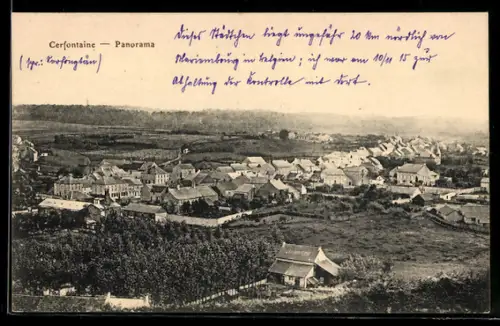 Cerfontaine — Panorama
(spr.: Serfongtän)
Dieses Städtchen liegt ungefähr 20 Km nördlich von
Mariembourg in Belgien; ich war am 10/11 15 zur
Abhaltung der Kontrolle mit dort.